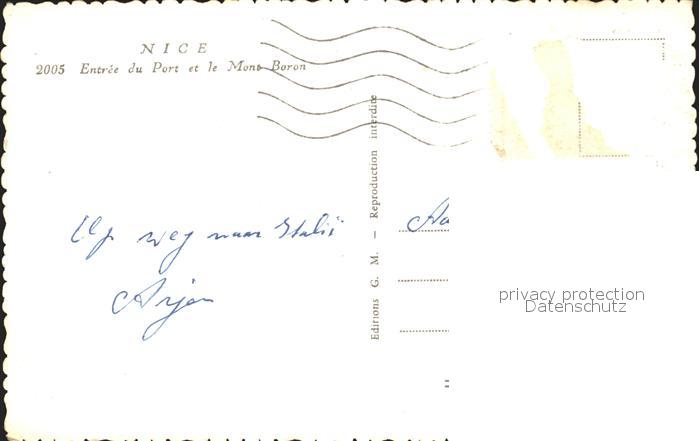 NICE
2005 Entrée du Port et le Mont Boron
Editions G. M. — Reproduction interdite
Op weg naar Italië
Arjen
Aa
privacy protection
Datenschutz